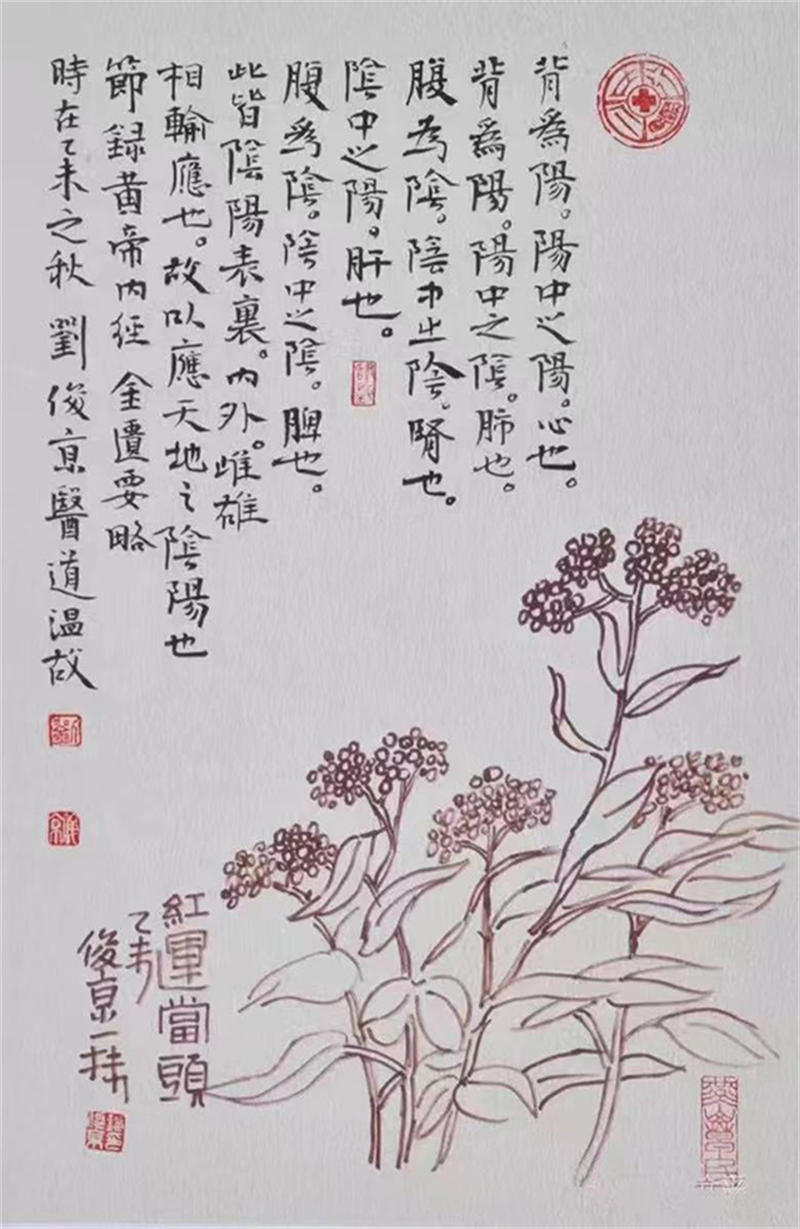 背為陽。陽中之陽。心也。
背爲陽。陽中之陰。肺也。
腹為陰。陰中之陰。腎也。
陰中之陽。肝也。
腹為陰。陰中之陰。脾也。
此皆陰陽表裏。内外。雌雄
相輸應也。故以應天地之陰陽也
節録黄帝内經 金匱要略
時在乙未之秋 劉俊京醫道温故
紅運當頭
乙未
俊京一抹